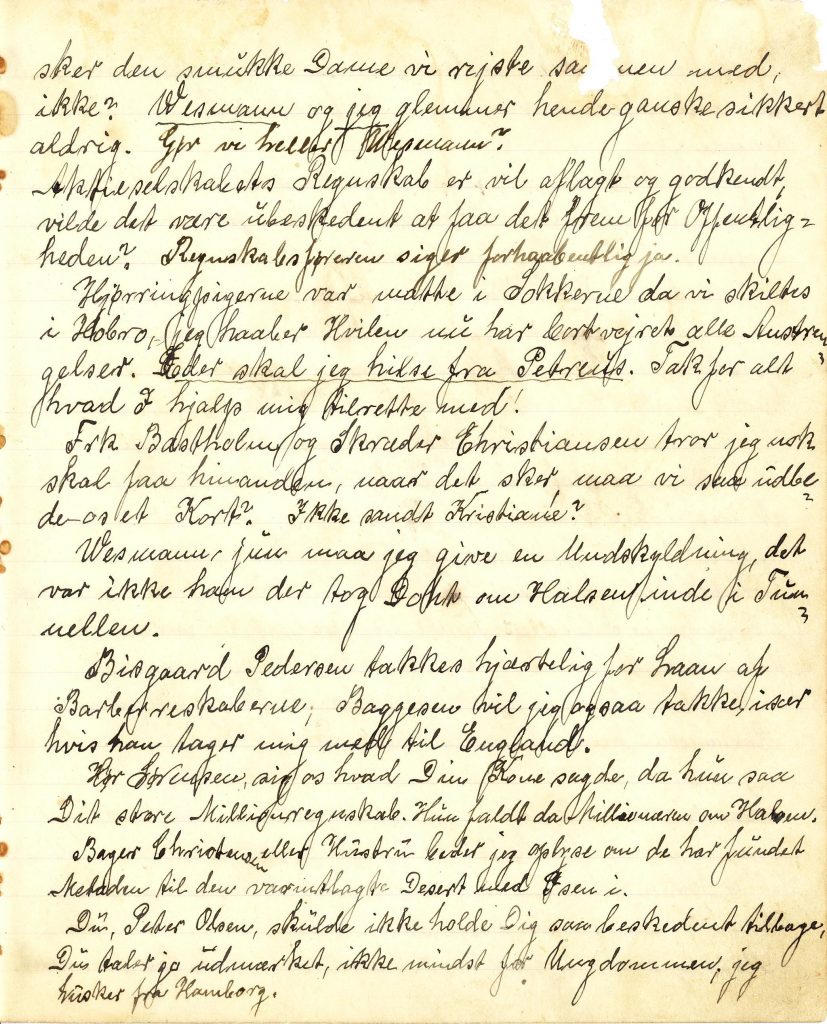 sker den smukke Dame vi rejste sammen med,
ikke? Wesmann og jeg glemmer hende ganske sikkert
aldrig. Gør vi heller Wesmann?
Aktieselskabets Regnskab er vil aflagt og godkendt,
vilde det være ubeskedent at faa det frem for Offentlig=
heden? Regnskabsføreren siger forhaabentlig ja.
Hjørringpigerne var matte i Sokkerne da vi skiltes
i Hobro, jeg haaber Hvilen nu har bortvejret alle Anstren
gelser. Eder skal jeg hilse fra Petreus. Tak for alt
hvad I hjalp mig tilrette med!
Frk Bastholm og Skræder Christiansen tror jeg nok
skal faa hinanden, naar det sker maa vi saa udbe
de os et Kort? Ikke sandt Kristiane?
Wesmann jun maa jeg give en Undskyldning, det
var ikke ham der tog om Halsen inde i Tun
nellen.
Bisgaard Pedersen takkes hjærtelig for Laan af
Barberreskaberne, Baggesen vil jeg ogsaa takke, især
hvis han tager mig med til England.
Hør Sørensen, sig os hvad Din Kone sagde, da hun saa
Dit store Millionregnskab. Hun faldt da Millionæren om Halsen.
Bager Christensen eller Hustru beder jeg oplyse om de har fundet
Metoden til den varmtbagte Desert med Isen i.
Du, Peter Olsen, skulde ikke holde Dig saa beskedent tilbage,
Du taler jo udmærket, ikke mindst for Ungdommen, jeg
husker fra Hamborg.